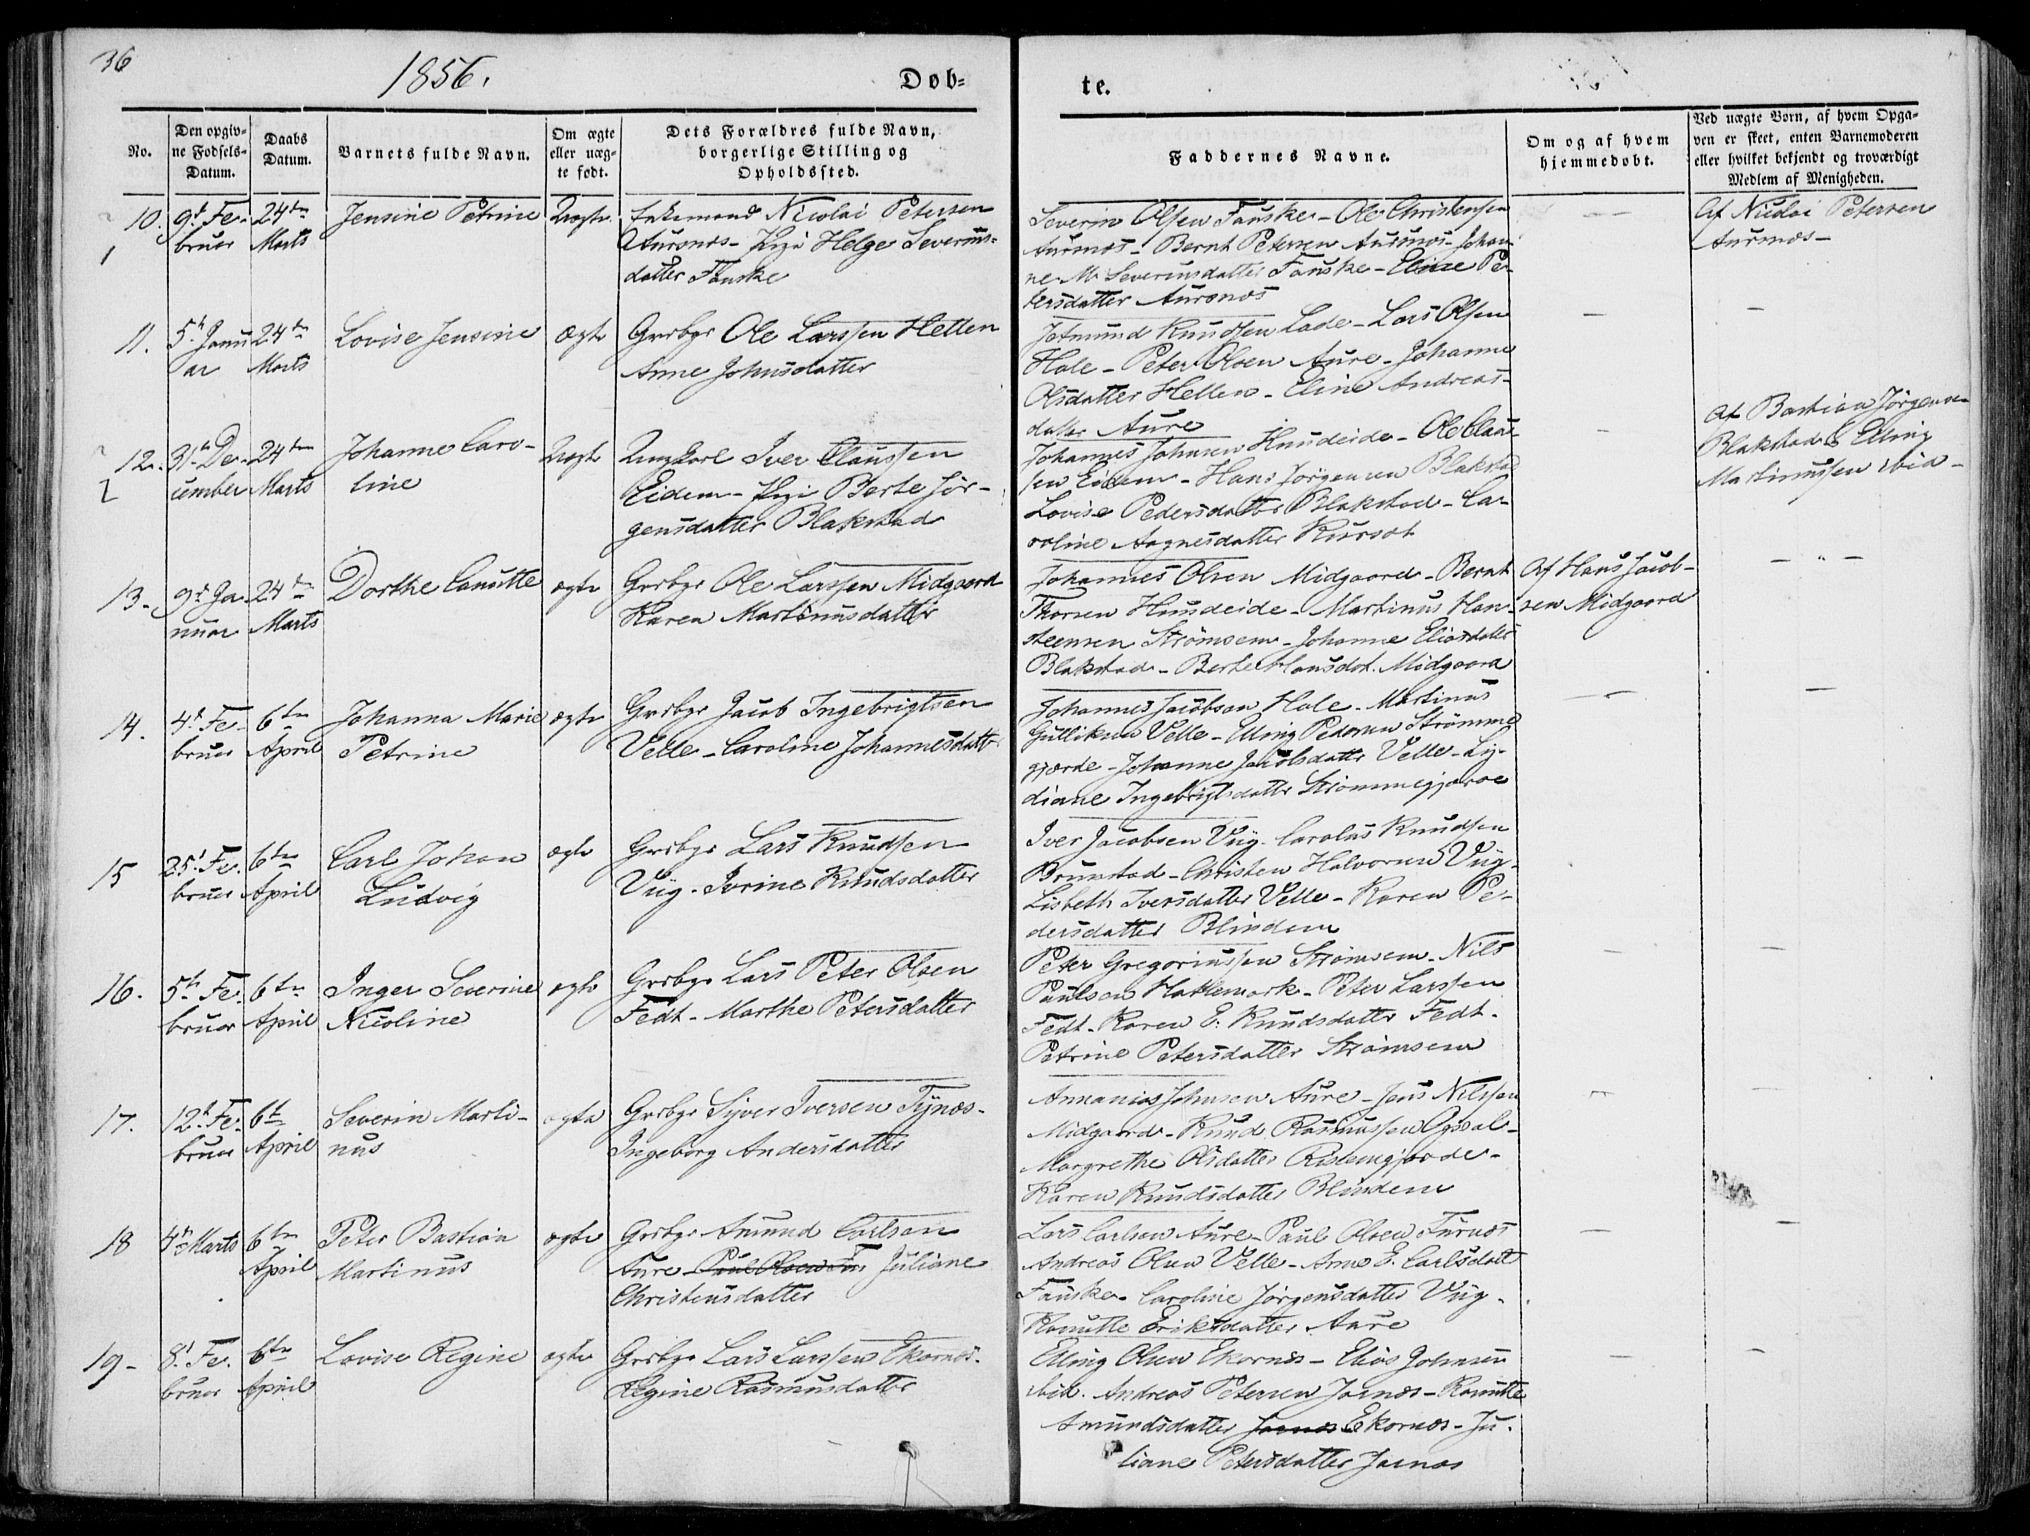 36
1856.
Døb=
te.
No.
Den opgiv=
ne Fødsels=
Datum.
Daabs
Datum.
Barnets fulde Navn.
Om ægte
eller uæg=
te født.
Dets Forældres fulde Navn,
borgerlige Stilling og
Opholdssted.
Faddernes Navne.
Om og af hvem
hjemmedøbt.
Ved uægte Børn, af hvem Opga=
ven er skeet, enten Barnemoderen
eller hvilket bekjendt og troværdigt
Medlem af Menigheden.
10.
1
9d Fe-
bruar
24de
Marts
Jensine Petrine
Uægte
Enkemand Nicolai Petersen
Aursnes - Pige Helge Severins-
datter Fauske
Severin Olsen Fauske - Ole Christensen
Aursnæs - Bernt Petersen Aursnæs - Johan-
ne M. Severinsdatter Fauske - Eline Pe-
tersdatter Aursnæs
Af Nicolai Petersen
Aursnæs -
11.
5t Janu
ar
24de
Marts
Lovise Jensine
Ægte
Grdbgr Ole Larssen Hellen
Anne Johnsdatter
Jetmund Knudsen Lade - Lars Olsen
Hole - Peter Olsen Aure - Johanne
Olsdatter Hellen - Eline Andreas-
datter Aure
12.
2
31t De-
cember
24de
Marts
Johanne Caro-
line
Uægte
Ungkarl Iver Claussen
Eidem - Pige Berte Jør-
gensdatter Blakstad
Johannes Johnsen Hundeide - Ole Claus-
sen Eidem - Hans Jørgensen Blakstad
Lovise Pedersdatter Blakstad - Ca-
roline Aagnesdatter Kurset
Af Bastian Jørgensen
Blakstad & Elling
Martinussen ibid -
13.
9d Ja-
nuar
24de
Marts
Dorthe Canutte
ægte
Grdbgr Ole Larssen Midgaard
Karen Martinusdatter
Johannes Olsen Midgaard - Bernt
Thorsen Hundeide - Martinus Han-
steensen Strømsem - Johanne Eliasdatter
Blakstad - Berte Hansdat. Midgaard
Af Hans Jacob-
sen Midgaard
14.
4d Fe-
bruar
6te
April
Johanna Marie
Petrine
ægte
Grdbgr Jacob Ingebrigtsen
Velle - Caroline Johannesdatter
Johannes Jacobsen Hole - Martinus
Gulliksen Velle - Elling Pedersen Strømme
gjærde - Johanne Jacobsdatter Velle - Ly-
diane Ingebrigtsdatter Strømmegjærde
15
25d Fe-
bruar
6te
April
Carl Johan
Ludvig
ægte
Grdbgr Lars Knudsen
Viig - Ivrine Knudsdatter
Iver Jacobsen Viig - Carolus Knudsen
Brunstad - Christen Halvorsen Viig -
Lisbeth Iversdatter Velle - Karen Pe-
dersdatter Blindem
16.
5t Fe-
bruar
6te
April
Inger Severine
Nicoline
ægte
Grdbgr Lars Peter Olsen
Fedt - Marthe Petersdatter
Peter Gregoriussen Strømsem - Nils
Paulsen Hatlemark - Peter Larssen
Fedt - Karen E. Knudsdatter Fedt -
Petrine Petersdatter Strømsem
17.
12t Fe-
bruar
6te
April
Severin Marti-
nus
ægte
Grdbgr Syver Iversen Tynæs -
Ingeborg Andersdatter
Annanias Johnsen Aure - Jens Nilssen
Midgaard - Knud Rasmussen
Margrethe Olsdatter
Karen Knudsdatter Blindem
18
4d Marts
6te
April
Peter Bastian
Martinus
ægte
Grdbgr Amund Carlsen
Aure - Paul Olsen Tu Juliane
Christensdatter
Lars Carlsen Aure - Paul Olsen Turnæs
Andreas Olsen Velle - Anne E. Carlsdatt
Fauske - Caroline Jørgensdatter Viig -
Kanutte Eriksdatter Aure
19 -
8d Fe-
bruar
6te
April
Lovise Regine
ægte
Grdbgr Lars Larssen Ekornæs -
Regine Rasmusdatter
Elling Olsen Ekornæs - Elias Johnsen
ibid. Andreas Petersen Jarnæs - Kanutte
Amundsdatter Jarnæs Ekornæs - Ju-
liane Petersdatter Jarnæs